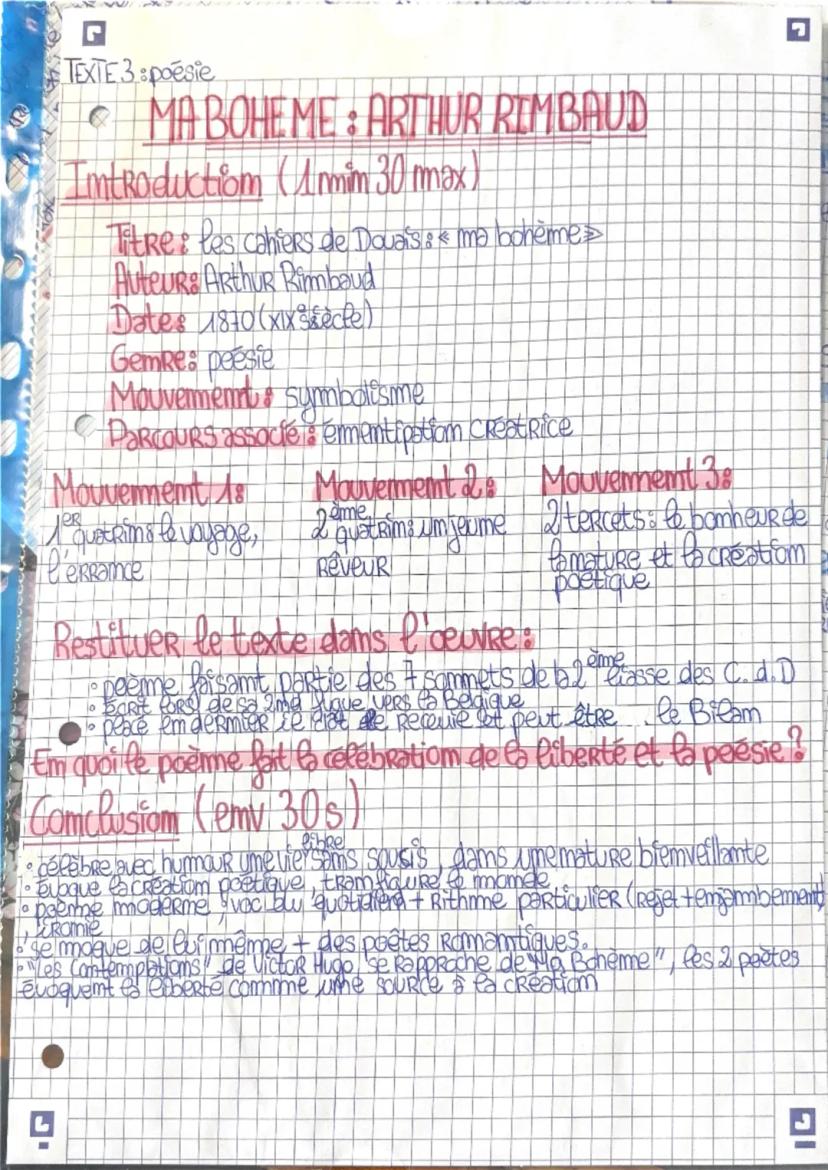 TEXTE 3 : poésie
MA BOHEME : ARTHUR RIMBAUD
Introduction (1 min 30 max)
Titre : les cahiers de Douais : « ma bohème »
Auteur : Arthur Rimbaud
Date : 1870 (XIXe siècle)
Genre : poésie
Mouvement : symbolisme
Parcours associé : émentipation créatrice
Mouvement 1 :
1er quatrin : le voyage,
l'errance
Mouvement 2 :
2ème quatrin : un jeune
rêveur
Mouvement 3 :
2 tercets : le bonheur de
la nature et la création
poétique
Restituer le texte dans l'œuvre :
• poème faisant partie des 7 sommets de la 2ème liasse des C.d.D
• écrit lors de sa 2nd fugue vers la Belgique
• placé en dernier de recueil et peut être le Bilan
En quoi le poème fait la célébration de la liberté et la poésie ?
Conclusion (env 30s)
• célèbre avec humour une vie libre sans soucis, dans une nature bienveillante
• évoque la création poétique, tranfigure le monde
• poème moderne, voc du quotidien + Rithme particulier (rejet + enjambement)
, ironie
• se moque de lui même + des poètes romantiques.
• "Les Contemplations" de Victor Hugo se rapproche de "Ma Bohème", les 2 poètes
évoquent la liberté comme une source à la création